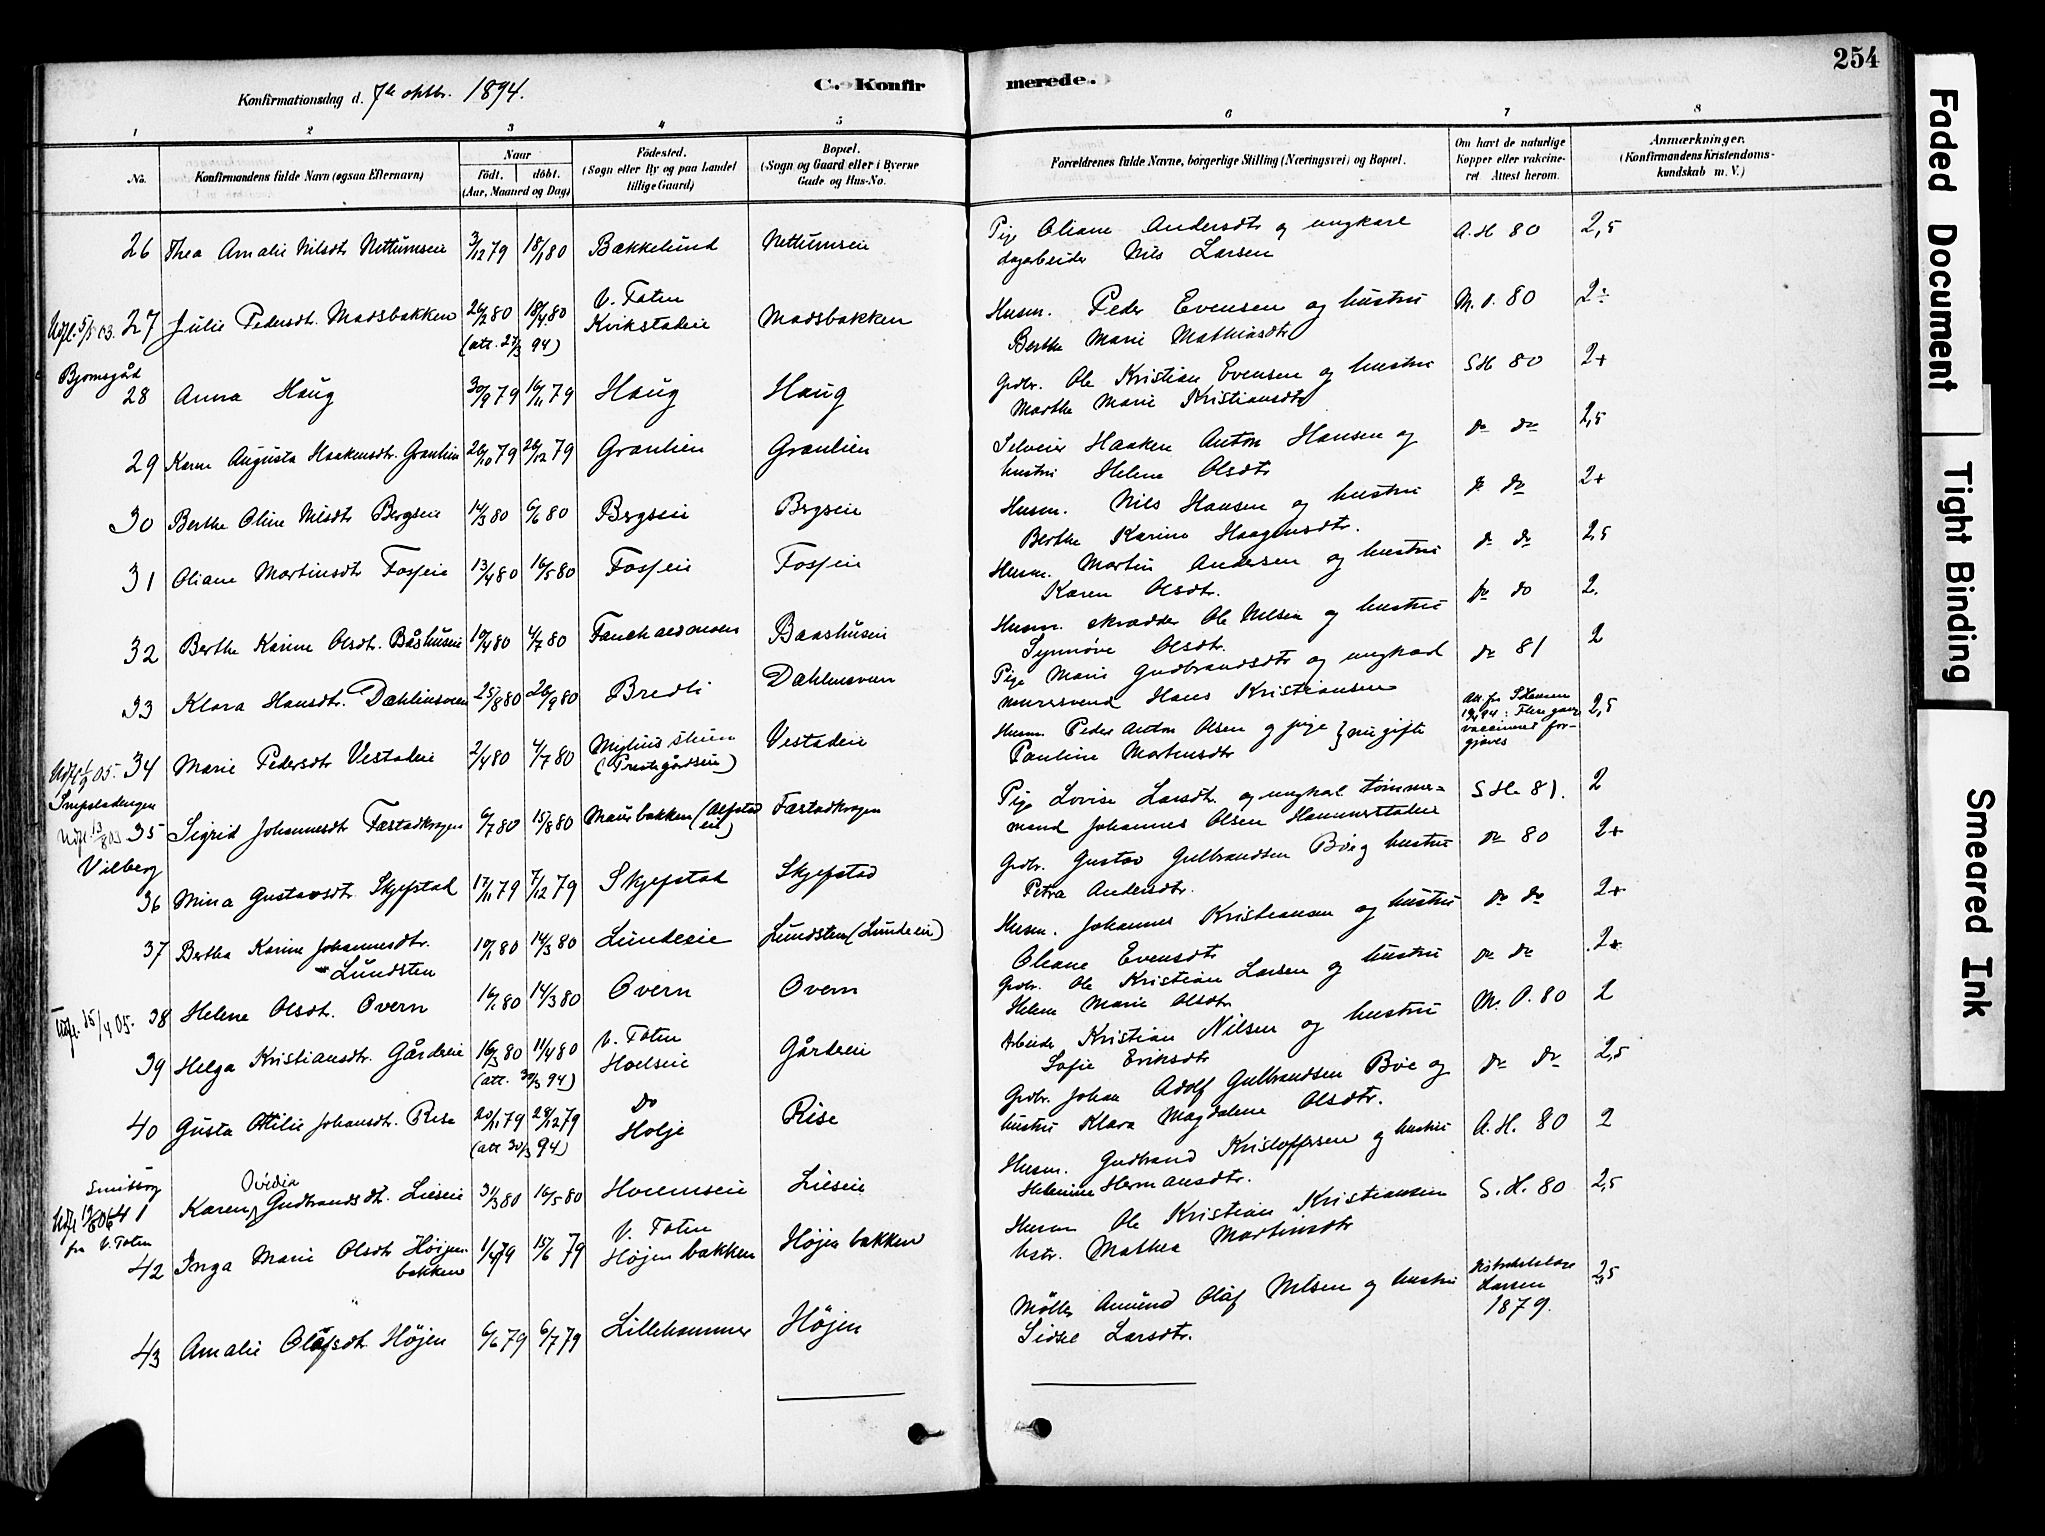 254
Konfirmationsdag d. 7de oktbr. 1894.
C. Konfir
merede.
1
2
3
4
5
6
7
8
No.
Konfirmandens fulde Navn (ogsaa Efternavn)
Naar
födt.
döbt.
(Aar, Maaned og Dag)
Födested.
(Sogn eller By og paa Landet
tillige Gaard)
Bopæl.
(Sogn og Gaard eller i Byerne
Gade og Hus-No.
Forældrenes fulde Navne, borgerlige Stilling (Næringsvei) og Bopæl.
Om havt de naturlige
Kopper eller vakcine-
ret. Attest herom.
Anmærkninger.
(Konfirmandens Kristendoms-
kundskab m. V.)
26 Thea Amalie Nilsdt Nettumseie 3/12 79 18/1 80 Bakkelund Nettumseie
Pige Oliane Andersdtr og ungkarl A.H 80 2,5
dagarbeider Nils Larsen
Udfl. 5/5 03. 27 Julie Pedersdt. Madsbakken 26/2 80 18/4 80 V. Toten
Kvikstadeie Madsbakken
(att. 27/3 94)
Husm. Peder Evensen og hustru M.O. 80 2÷
Berthe Marie Mathiasdtr
Bjornsgård
28 Anna Haug 30/9 79 16/11 79 Haug Haug
Grdbr. Ole Kristian Evensen og hustru S.H 80 2+
Marthe Marie Kristiansdtr
29 Karen Augusta Haakensdtr. Granlien 26/10 79 26/12 79 Granlien Granlien
Selveier Haaken Anton Hansen og do do 2,5
hustru Helene Olsdtr
30 Berthe Oline Nilsdtr Bergseie 14/3 80 6/6 80 Bergseie Bergseie
Husm. Nils Hansen og hustru do do 2+
Berthe Karine Haagensdtr.
31 Oliane Martinsdtr Fosseie 13/4 80 16/5 80 Fosseie Fosseie
Husm. Martin Andersen og hustru do do 2,5
Karen Olsdtr.
32 Berthe Karine Olsdtr. Båshuseie 10/4 80 4/7 80 Baashuseie
Husm. skrædder Ole Nilsen og hustru do do 2.
Synnøve Olsdtr.
33 Klara Hansdtr. Dahlensveen 25/8 80 26/9 80 Bredli Dahlensveen
Pige Marie Gudbrandsdtr og ungkarl do 81 2
murersvend Hans Kristiansen
Udfl 1/9 05. 34 Marie Pedersdtr Vestadeie 2/4 80 4/7 80
(Prestegårdseie) Vestadeie
Husm. Peder Anton Olsen og pige } nu gifte
Pauline Martinsdtr
Att fra S Hansen
94: Flere gange
vaccineret for-
gjæves
2,5
Udfl 13/8 03 35 Sigrid Johannesdtr Færstadkragen 6/7 80 15/8 80 (Alfstad
eie) Færstadkragen
Pige Lovise Larsdtr. og ungkarl tømmer- S.H. 81. 2
mand Johannes Olsen Hammerstadeie
Vilberg
36 Mina Gustavsdtr. Skjefstad 17/11 79 7/12 79 Skjefstad Skjefstad
Grdbr. Gustav Gulbrandsen Bøe og hustru do 80 2+
Petra Andersdtr.
37 Bertha Karine Johannesdtr.
Lundsten 10/1 80 14/3 80 Lundeeie Lundsten (Lundeeie)
Husm. Johannes Kristiansen og hustru do do 2+
Oleane Evensdtr
Udfl. 15/4 05. 38 Helene Olsdt. Overn 16/1 80 14/3 80 Overn Overn
Grdbr. Ole Kristian Larsen og hustru do do 2+
Helene Marie Olsdtr
39 Helga Kristiansdtr. Gårdeie 16/3 80 11/4 80 V. Toten
Hoelseie Gårdeie
(att. 30/3 94)
Arbeider Kristian Nilsen og hustru M.O. 80 2
Sofie Eriksdtr
40 Gusta Otilie Johansdt. Rise 20/11 79 28/12 79 Do
Holje Rise
(att 30/3 94)
Grdbr. Johan Adolf Gulbrandsen Bøe og do do 2,5
hustru Klara Magdalene Olsdtr.
Smitborg
Udfl 19/6 06 41 Karen Ovidia Gudbrandsdt. Lieseie 31/3 80 16/5 80 Hvemseie Lieseie
Husm. Gudbrand Kristoffersen og hustru A.H. 80 2
Helenine Hermansdtr.
fra V. Toten
42 Inga Marie Olsdtr Høijen-
bakken 1/4 79 15/6 79 V. Toten
Højen bakken Højen bakken
Husm Ole Kristian Kristiansen S.H. 80 2,5
hstr. Mathea Martinsdtr
43 Amalie Olafsdt. Højen 6/6 79 6/7 79 Lillehammer Højen
Møller Amund Olaf Nilsen og hustru Distriktslæge
Larsen
1879. 2,5
Sidsel Larsdtr.
Faded Document
Tight Binding
Smeared Ink